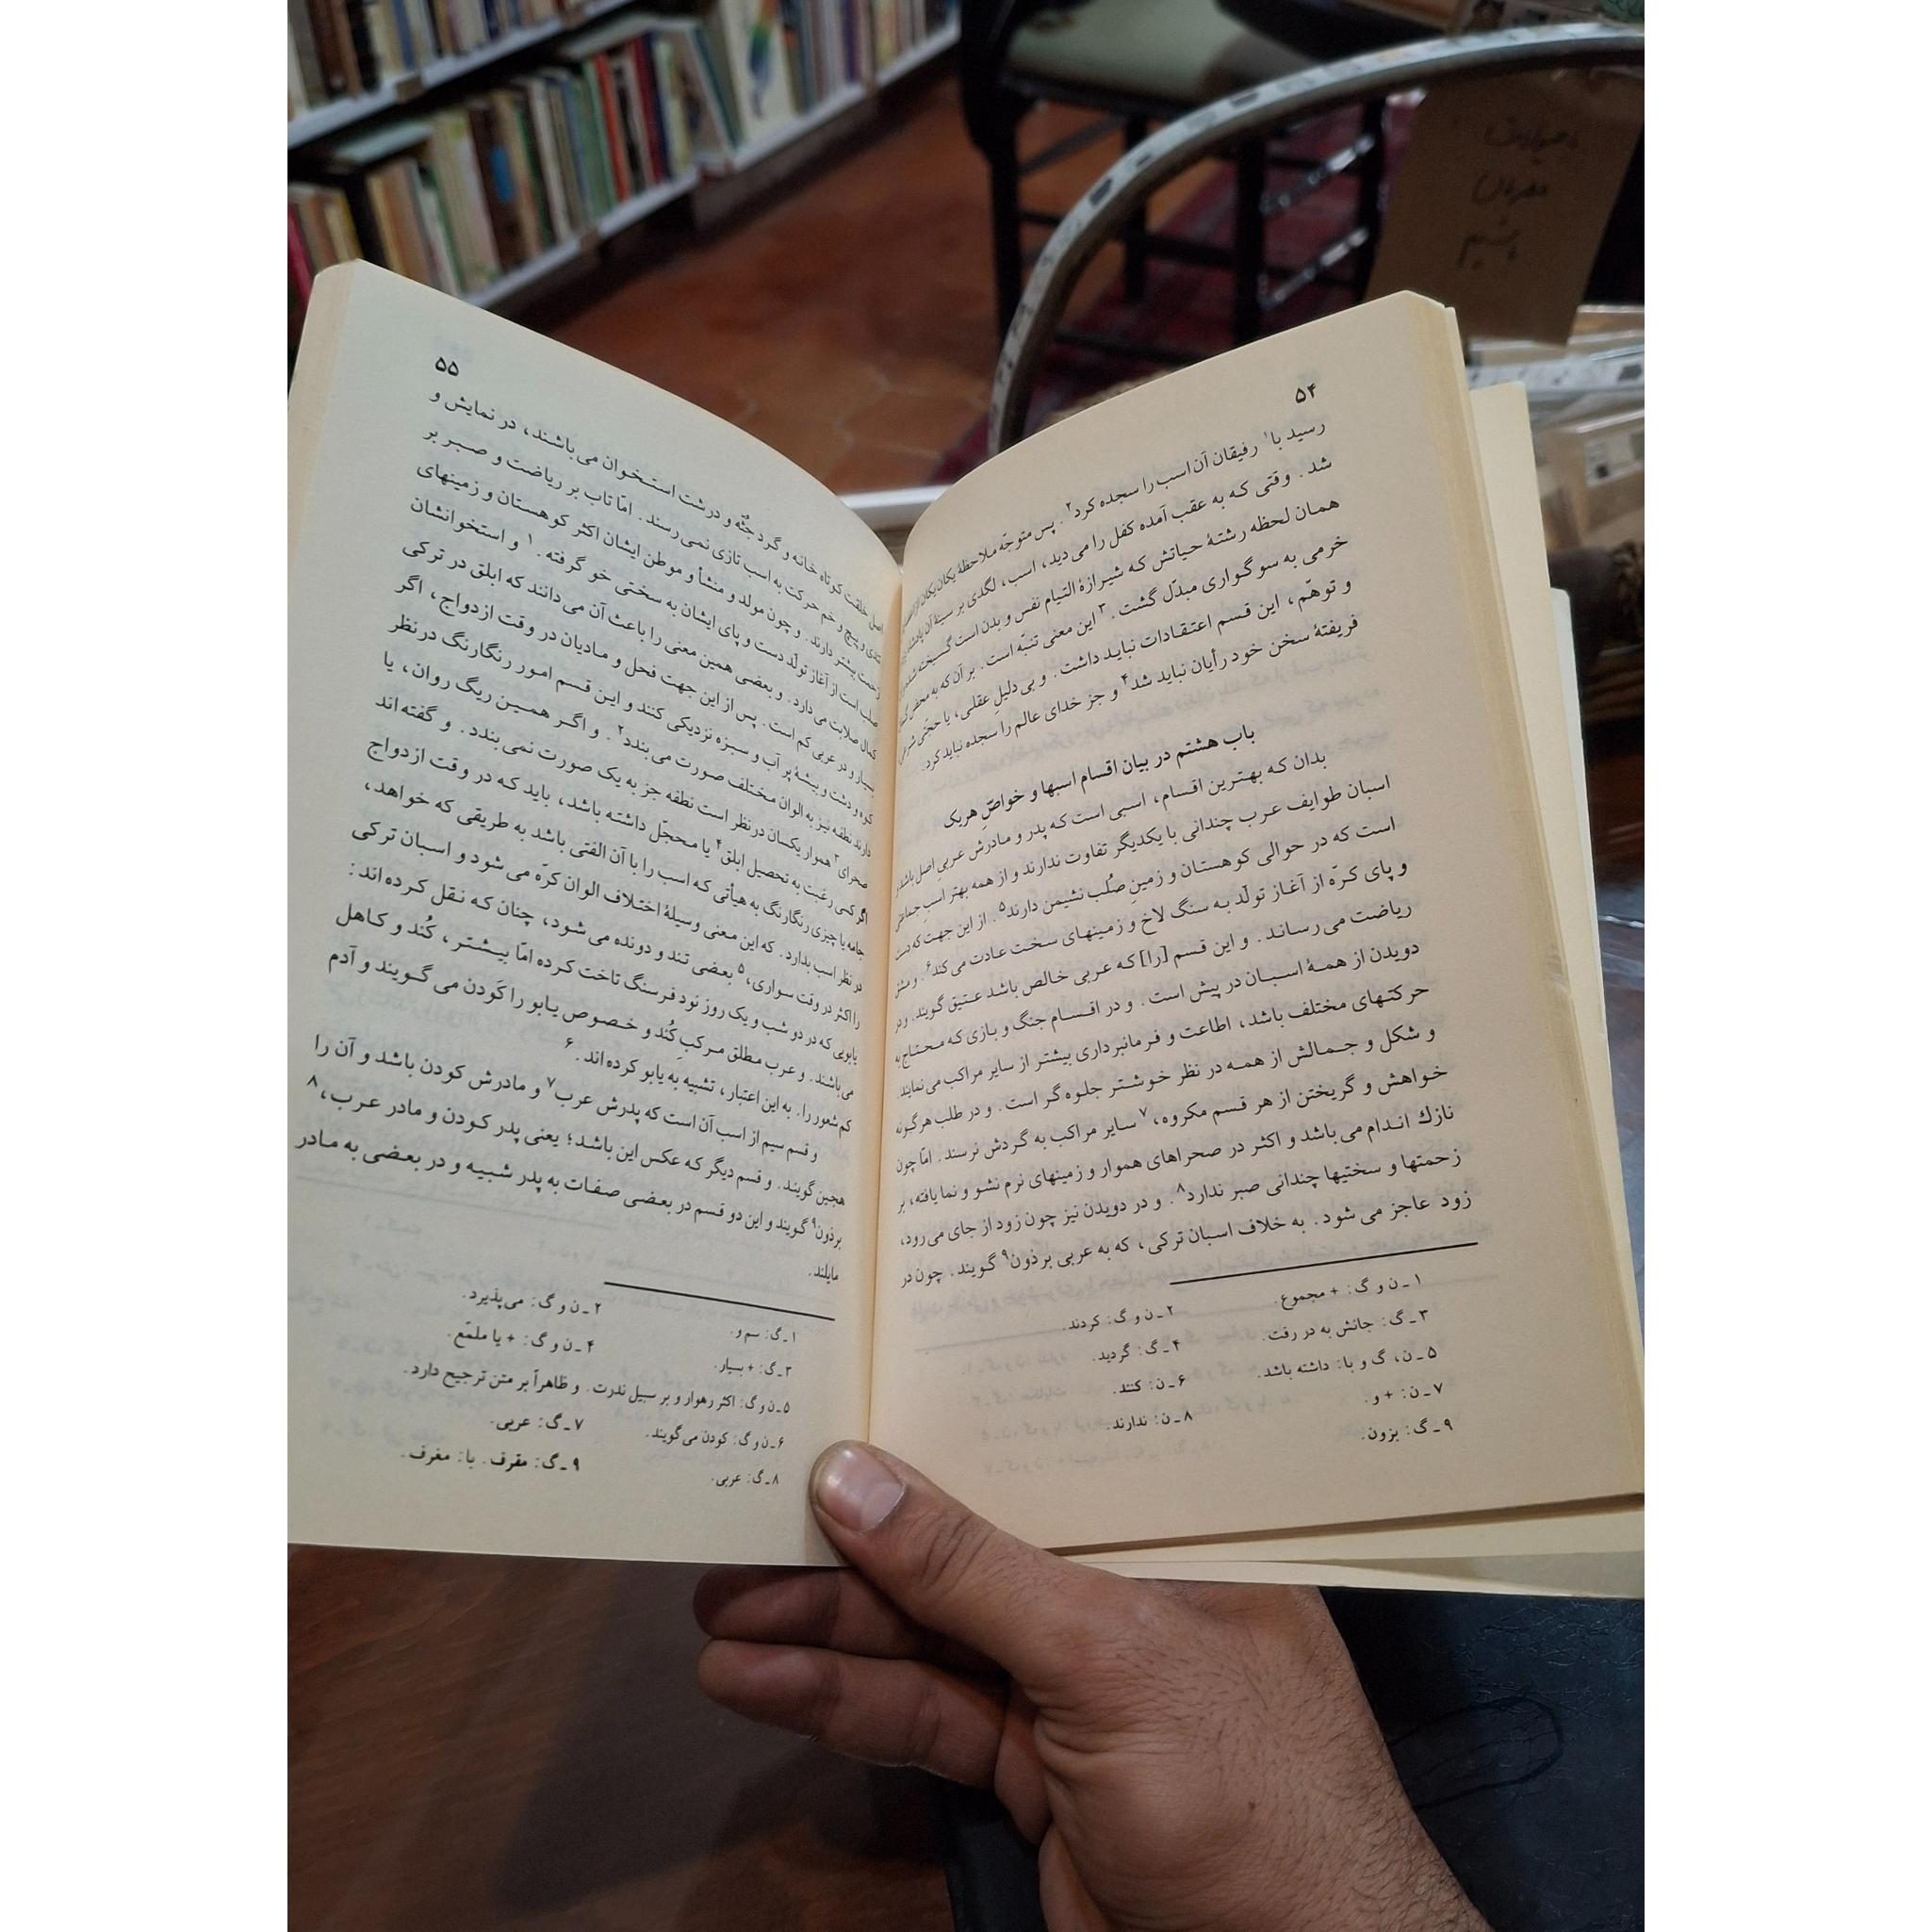 ۵۴
رسید با۱ رفیقان آن اسب را سجده کرد۲. پس متوجّه ملاحظهٔ یکان یکان از
شد. وقتی که به عقب آمده کفل را می دید، اسب، لگدی بر سینهٔ آن پادشاه
همان لحظه رشتهٔ حیاتش که شیرازهٔ التیام نفس و بدن است گسیخته شد
خرمی به سوگواری مبدّل گشت.۳ این معنی تنبّه است. بر آن که به محض
و توهّم، این قسم اعتقادات نباید داشت. و بی دلیلِ عقلی، یا حجتی شرعی
فریفتهٔ سخن خود رأیان نباید شد۴ و جز خدای عالم را سجده نباید کرد.
باب هشتم در بیان اقسام اسبها و خواصِّ هریک
بدان که بهترین اقسام، اسبی است که پدر و مادرش عربیِ اصل باشد
اسبان طوایف عرب چندانی با یکدیگر تفاوت ندارند و از همه بهتر اسبِ
است که در حوالی کوهستان و زمینِ صُلب نشیمن دارند۵. از این جهت که دست
و پای کرّه از آغاز تولّد به سنگ لاخ و زمینهای سخت عادت می کند۶. و مشق
ریاضت می رساند. و این قسم [را] که عربی خالص باشد عتیق گویند. و در
دویدن از همهٔ اسبان در پیش است. و در اقسام جنگ و بازی که محتاج به
حرکتهای مختلف باشد، اطاعت و فرمانبرداری بیشتر از سایر مراکب می نماید.
و شکل و جمالش از همه در نظر خوشتر جلوه گر است. و در طلب هرگونه
خواهش و گریختن از هر قسم مکروه،۷ سایر مراکب به گردش نرسند. امّا چون
نازك اندام می باشد و اکثر در صحراهای هموار و زمینهای نرم نشو و نما یافته، بر
زحمتها و سختیها چندانی صبر ندارد۸. و در دویدن نیز چون زود از جای می رود،
زود عاجز می شود. به خلاف اسبان ترکی، که به عربی برذون۹ گویند. چون در
۱ـ ن و گ: + مجموع. ۲ـ ن و گ: کردند.
۳ـ گ: جانش به در رفت. ۴ـ گ: گردید.
۵ـ ن، گ و با: داشته باشد. ۶ـ ن: کنند.
۷ـ ن: + و. ۸ـ ن: ندارند.
۹ـ گ: بزون.
۵۵
اصل خلقت کوتاه خانه و گرد جثّه و درشت استخوان می باشند، در نمایش و
تندی و پیچ و خم حرکت به اسب تازی نمی رسند. امّا تاب بر ریاضت و صبر بر
زحمت بیشتر دارند. و چون مولد و منشأ و موطن ایشان اکثر کوهستان و زمینهای
صلب است از آغاز تولّد دست و پای ایشان به سختی خو گرفته.۱ و استخوانشان
کمال صلابت می دارد. و بعضی همین معنی را باعث آن می دانند که ابلق در ترکی
بسیار و در عربی کم است. پس از این جهت فحل و مادیان در وقت ازدواج، اگر
کوه و دشت و بیشهٔ پر آب و سبزه نزدیکی کنند و این قسم امور رنگارنگ در نظر
دارند نطفه نیز به الوان مختلف صورت می بندد۲. و اگر همین ریگ روان، یا
صحرای۳ هموار یکسان در نظر است نطفه جز به یک صورت نمی بندد. و گفته اند
اگر کسی رغبت به تحصیل ابلق۴ یا محجّل داشته باشد، باید که در وقت ازدواج
جامه یا چیزی رنگارنگ به هیأتی که اسب را با آن الفتی باشد به طریقی که خواهد،
در نظر اسب بدارد. که این معنی وسیلهٔ اختلاف الوان کرّه می شود و اسبان ترکی
را اکثر در وقت سواری،۵ بعضی تند و دونده می شود، چنان که نقل کرده اند:
یابویی که در دو شب و یک روز نود فرسنگ تاخت کرده امّا بیشتر، کُند و کاهل
می باشند. و عرب مطلق مرکبِ کُند و خصوص یابو را کَودن می گویند و آدم
کم شعور را. به این اعتبار، تشبیه به یابو کرده اند.۶
و قسم سیم از اسب آن است که پدرش عرب۷ و مادرش کودن باشد و آن را
هجین گویند. و قسم دیگر که عکس این باشد؛ یعنی پدر کودن و مادر عرب،۸
برذون۹ گویند و این دو قسم در بعضی صفات به پدر شبیه و در بعضی به مادر
مایلند.
۱ـ گ: سم و. ۲ـ ن و گ: می‌پذیرد.
۳ـ گ: + بسیار. ۴ـ ن و گ: + یا ملمّع.
۵ـ ن و گ: اکثر رهوار و بر سبیل ندرت. و ظاهراً بر متن ترجیح دارد.
۶ـ ن و گ: کودن می‌گویند. ۷ـ گ: عربی.
۸ـ گ: عربی. ۹ـ گ: مقرف. با: مغرف.
مهربان